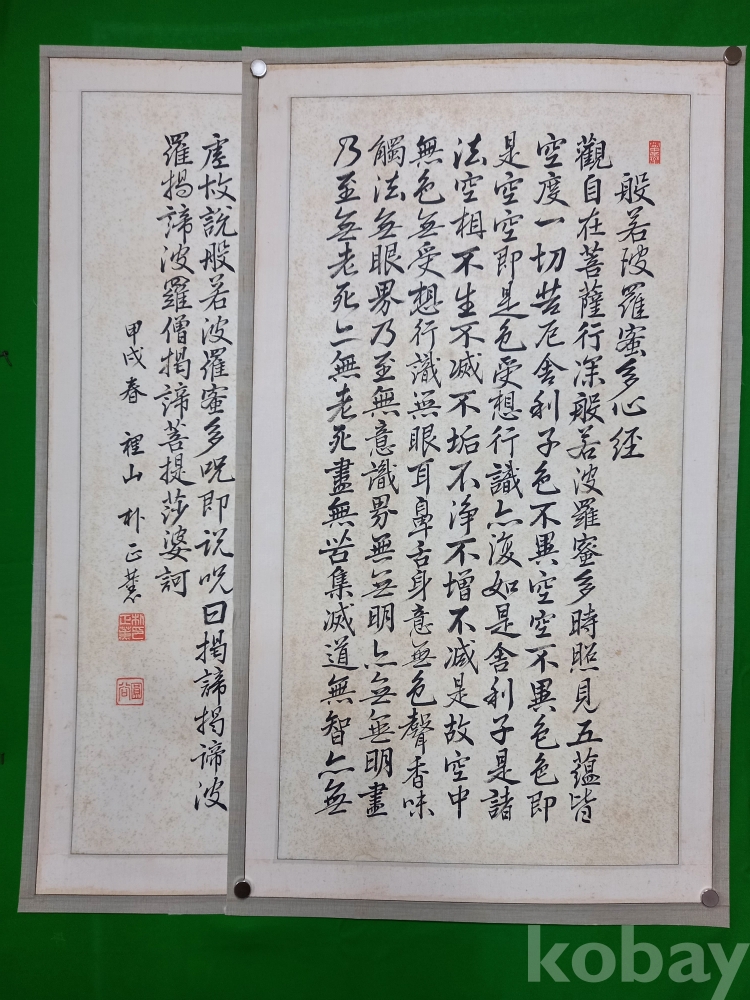 般若波羅蜜多心經
觀自在菩薩行深般若波羅蜜多時照見五蘊皆
空度一切苦厄舍利子色不異空空不異色色即
是空空即是色受想行識亦復如是舍利子是諸
法空相不生不滅不垢不淨不增不減是故空中
無色無受想行識無眼耳鼻舌身意無色聲香味
觸法無眼界乃至無意識界無無明亦無無明盡
乃至無老死亦無老死盡無苦集滅道無智亦無
虛故說般若波羅蜜多呪即說呪曰揭諦揭諦波
羅揭諦波羅僧揭諦菩提莎婆訶
甲戌春 裡山 朴正
kobay